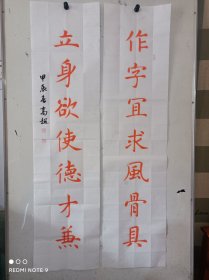 作字宜求風骨具
立身欲使德才兼
甲辰春高超
REDMI NOTE 9